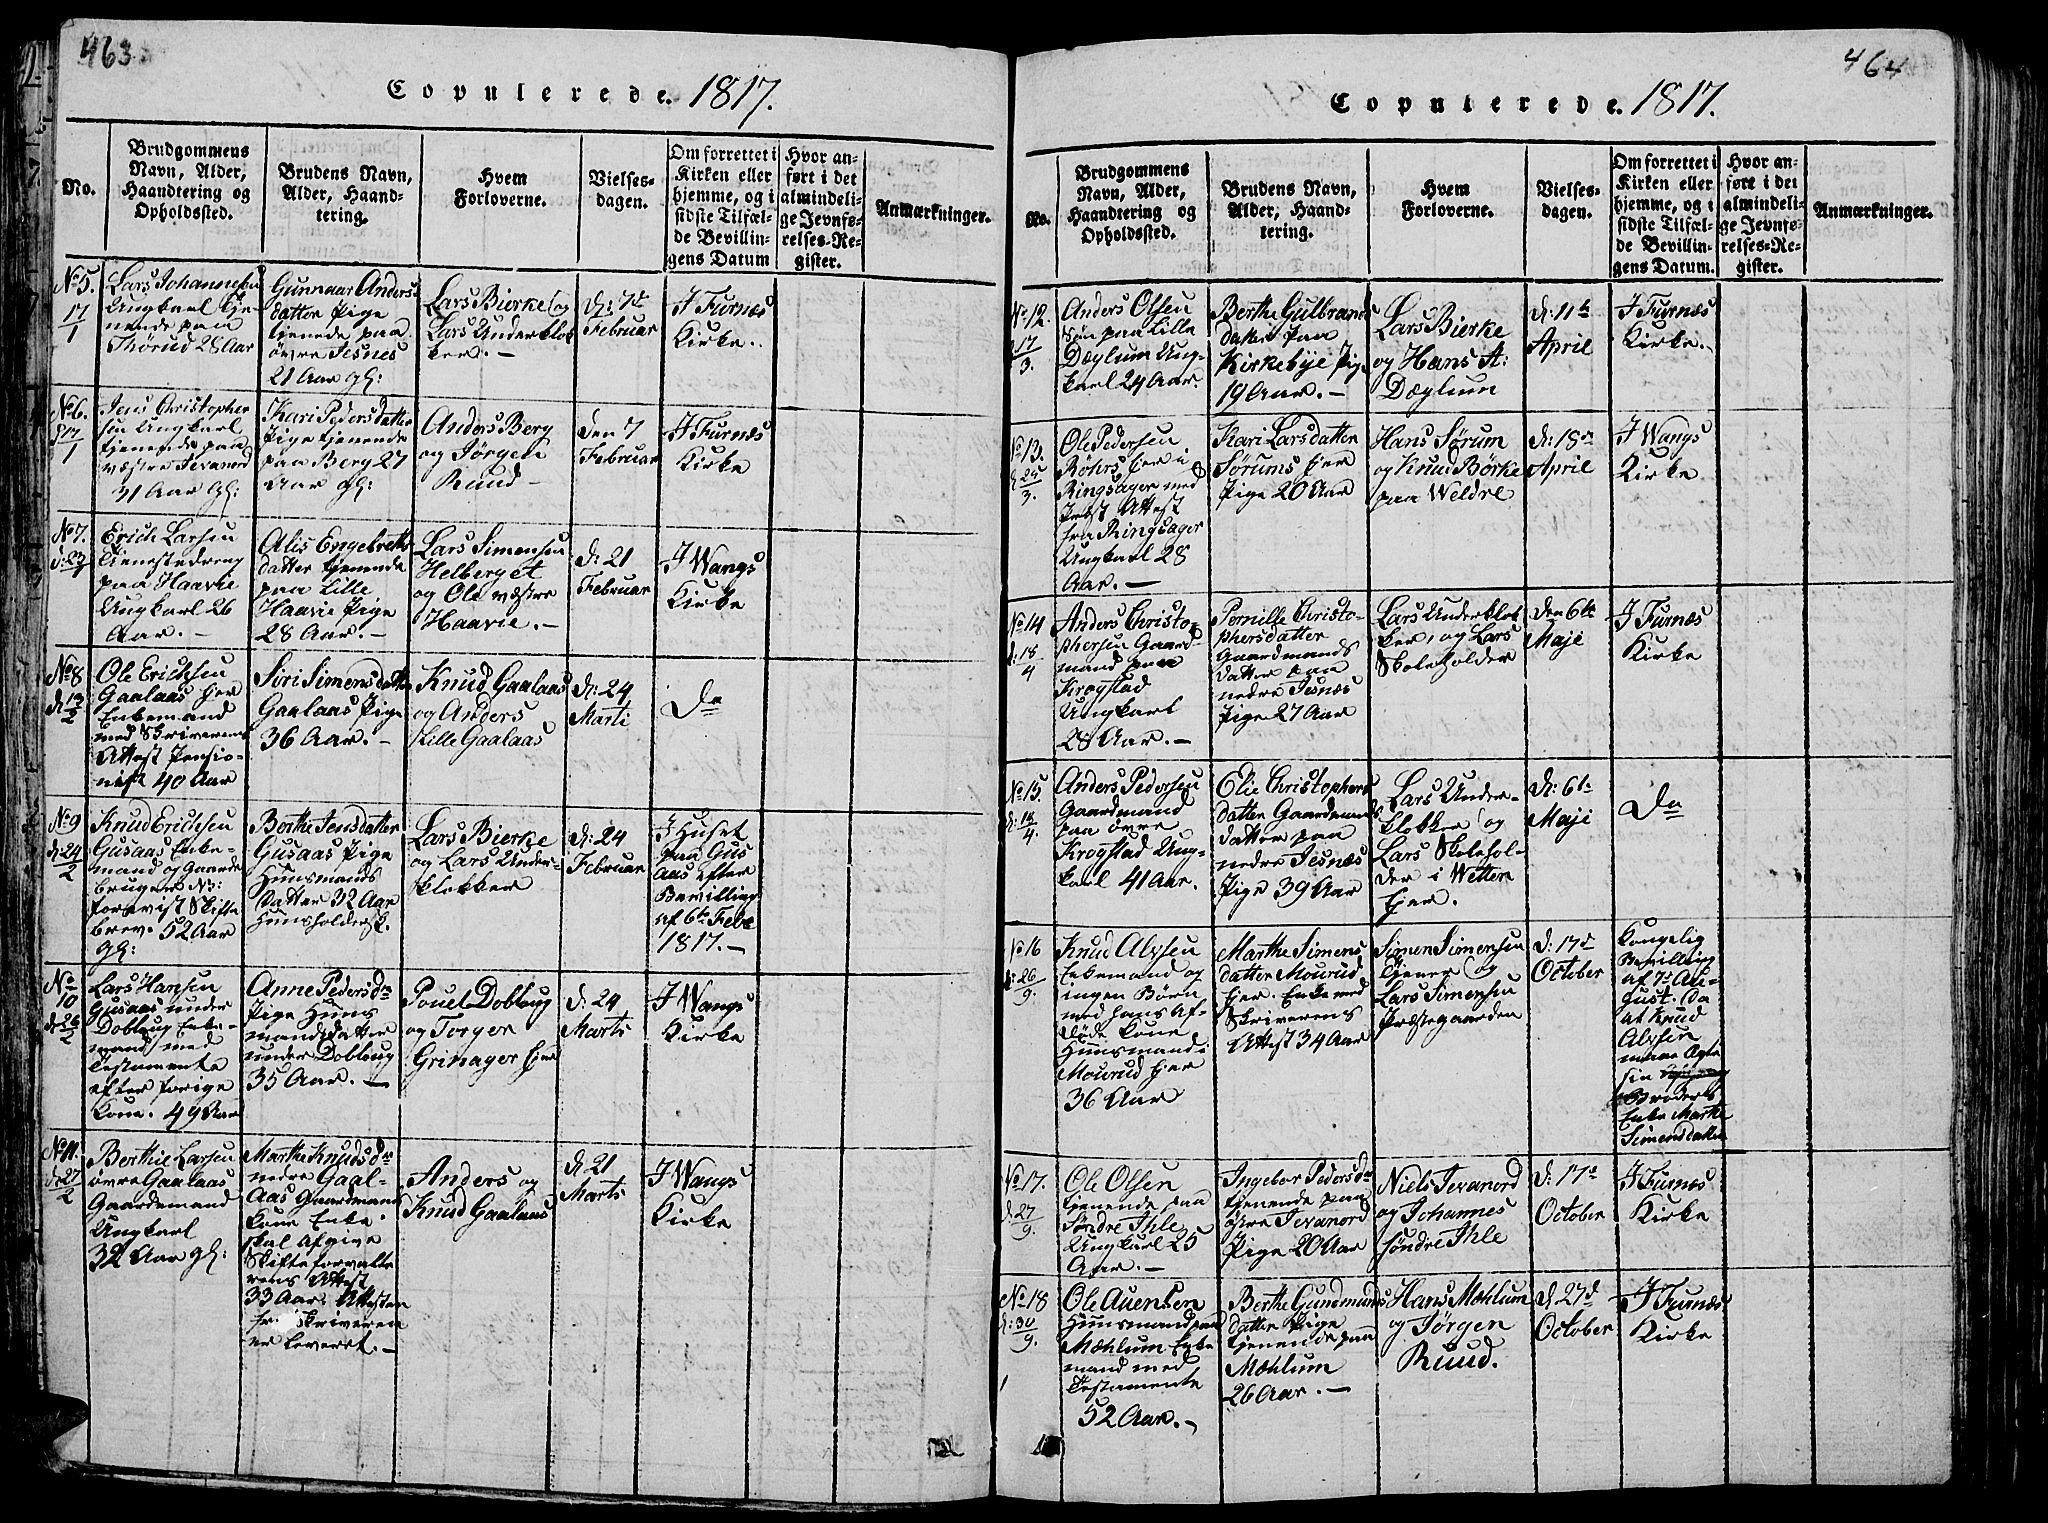 463
Copulerede. 1817.
No.
Brudgommens
Navn, Alder,
Haandtering og
Opholdssted.
Brudens Navn,
Alder, Haand-
tering.
Hvem
Forloverne.
Vielses-
dagen.
Om forrettet i
Kirken eller
hjemme, og i
sidste Tilfæl-
de Bevillin-
gens Datum
Hvor an-
ført i det
almindeli-
ge Jevnfø-
relses-Re-
gister.
Anmærkninger.
No 5.
17/1
Lars Johannesen
Ungkarl tje-
nende paa
Thørud 28 Aar
Gunnaar Anders
datter Pige
tjenede paa
øvre Jesnes
21 Aar gl:
Lars Bierke og
Lars Underklok
ker. -
d: 7de
Februar
I Furnæs
Kirke.
No 6.
17/1
Jens Christopher
sen Ungkarl
tjenende paa
væstre Jevanord
31 Aar gl:
Kari Pedersdatter
Pige tjenende
paa Berg 27
Aar gl:
Anders Berg
og Jørgen
Ruud -
den 7
Februar
I Furnæs
Kirke
No 7.
d: 23/1
Erich Larsen
Tienestedreng
paa Haavie
Ungkarl 26
Aar. -
Alis Engebrets
datter tjenende
paa Lille
Haavie Pige
28 Aar. -
Lars Simensen
Helberget
og Ole væstre
Haavie. -
d: 21
Februar
I Wangs
Kirke
No 8
d: 13/2
Ole Erichsen
Gaalaas Eier
Enkemand
med Skriverens
Attest Pensio-
nist 40 Aar
Siri Simensdatter
Gaalaas Pige
36 Aar. -
Knud Gaalaas
og Anders
Lille Gaalaas
d: 24
Marti
Do
No 9
d: 24/2
Knud Erichsen
Gusaas Enke-
mand og Gaard
bruger
forevist Skifte
brev. 52 Aar
gl:
Berthe Jensdatter
Gusaas Pige
Huusmands
Datter 32 Aar
Huusholdersk.
Lars Bierke
og Lars Under-
klokker
d: 24
Februar
I Huset
paa Gus
aas efter
Bevilling
af 6te Febr
1817. -
No 10
d: 26/2
Lars Hansen
Gusaas under
Dobloug Enke-
mand med
Testamente
efter forige
Kone. 49 Aar
Anne Pedersdr
Pige Huus
mandsdatter
under Dobloug
35 Aar. -
Pouel Dobloug
og Torger
Grinager Eier
d: 24
Marts
I Wangs
Kirke
No 11.
d: 27/2
Berthie Larsen
øvre Gaalaas
Gaardemand
Ungkarl
32 Aar gl:
Marthe Knudsdr
nedre Gaal-
aas Gaardmands
kone Enke
skal afgive
Skifteforvalte
rens Attest
33 Aar. Attesten
Skriveren
er leveret. -
Anders og
Knud Gaalaas
d: 21
Marts
I Wangs
Kirke
464
Copulerede. 1817.
No.
Brudgommens
Navn, Alder,
Haandtering og
Opholdssted.
Brudens Navn,
Alder, Haand-
tering.
Hvem
Forloverne.
Vielses-
dagen.
Om forrettet i
Kirken eller
hjemme, og i
sidste Tilfæl-
de Bevillin-
gens Datum.
Hvor an-
ført i det
almindeli-
ge Jevnfø-
relses-Re-
gister.
Anmærkninger.
No 12.
17/3
Anders Olsen
Søn paa Lille
Dæglum Ung-
karl 24 Aar.
Berthe Gulbrands
datter paa
Kirkebye Pige
19 Aar. -
Lars Bierke
og Hans A:
Dæglum
d: 11te
April
I Furnæs
Kirke.
No 13.
25/3.
Ole Pedersen
Rohrs Eier i
Ringsager med
Præst Attest
fra Ringsager
Ungkarl 28
Aar. -
Kari Larsdatter
Sørums Eier
Pige 20 Aar
Hans Sørum
og Knud Børke
paa Weldre
d: 18de
April
I Wangs
Kirke
No 14
d: 18/4
Anders Christo-
phersen Gaard-
mand paa
Krogstad
Ungkarl
28 Aar. -
Pernille Christo-
phersdatter
Gaardmands
datter paa
nedre Jesnæs
Pige 27 Aar
Lars Underklok
ker, og Lars
Skoleholder
den 6te
Maji
I Furnæs
Kirke
No 15.
d: 18/4
Anders Pedersen
Gaardmand
paa øvre
Krogstad Ung-
karl 41 Aar.
Elie Christophers
datter Gaardmands
datter paa
nedre Jesnæs
Pige 39 Aar
Lars Under-
klokker og
Lars Skolehol-
der i Wetten
Eier.
d: 6te
Maji
Do
No 16
d: 26/9.
Knud Alvsen
Enkemand og
ingen Børn
med hans af-
døde kone
Huusmand i
Mourud Eier
36 Aar
Marthe Simens
datter Mourud
Eier. Enke med
Skriverens
Attest 34 Aar
Simen Simensen
tjener og
Lars Simensen
Præstegaarden
d: 17de
October
Kongelig
Bevilling
af 7de Au-
gust. Da
at Knud
Alvsen
maae Ægte
sin
Broders
Enke Marthe
Simensdatter
No 17.
d: 27/9.
Ole Olsen
tjenende paa
Søndre Ihle
Ungkarl 25
Aar. -
Ingebor Pedersdr
tjenende paa
øvre Jevanord
Pige 20 Aar
Niels Jevanord
og Johannes
søndre Ihle
d: 17de
October
I Furnæs
Kirke
No 18
d: 30/9.
Ole Auensen
Huusmand paa
Mæhlum Enke
mand med
Testamente
52 Aar. -
Berthe Gundmunds
datter Pige
tjenende paa
Mæhlum
26 Aar. -
Hans Mæhlum
og Jørgen
Ruud.
d: 27de
October
I Furnæs
Kirke